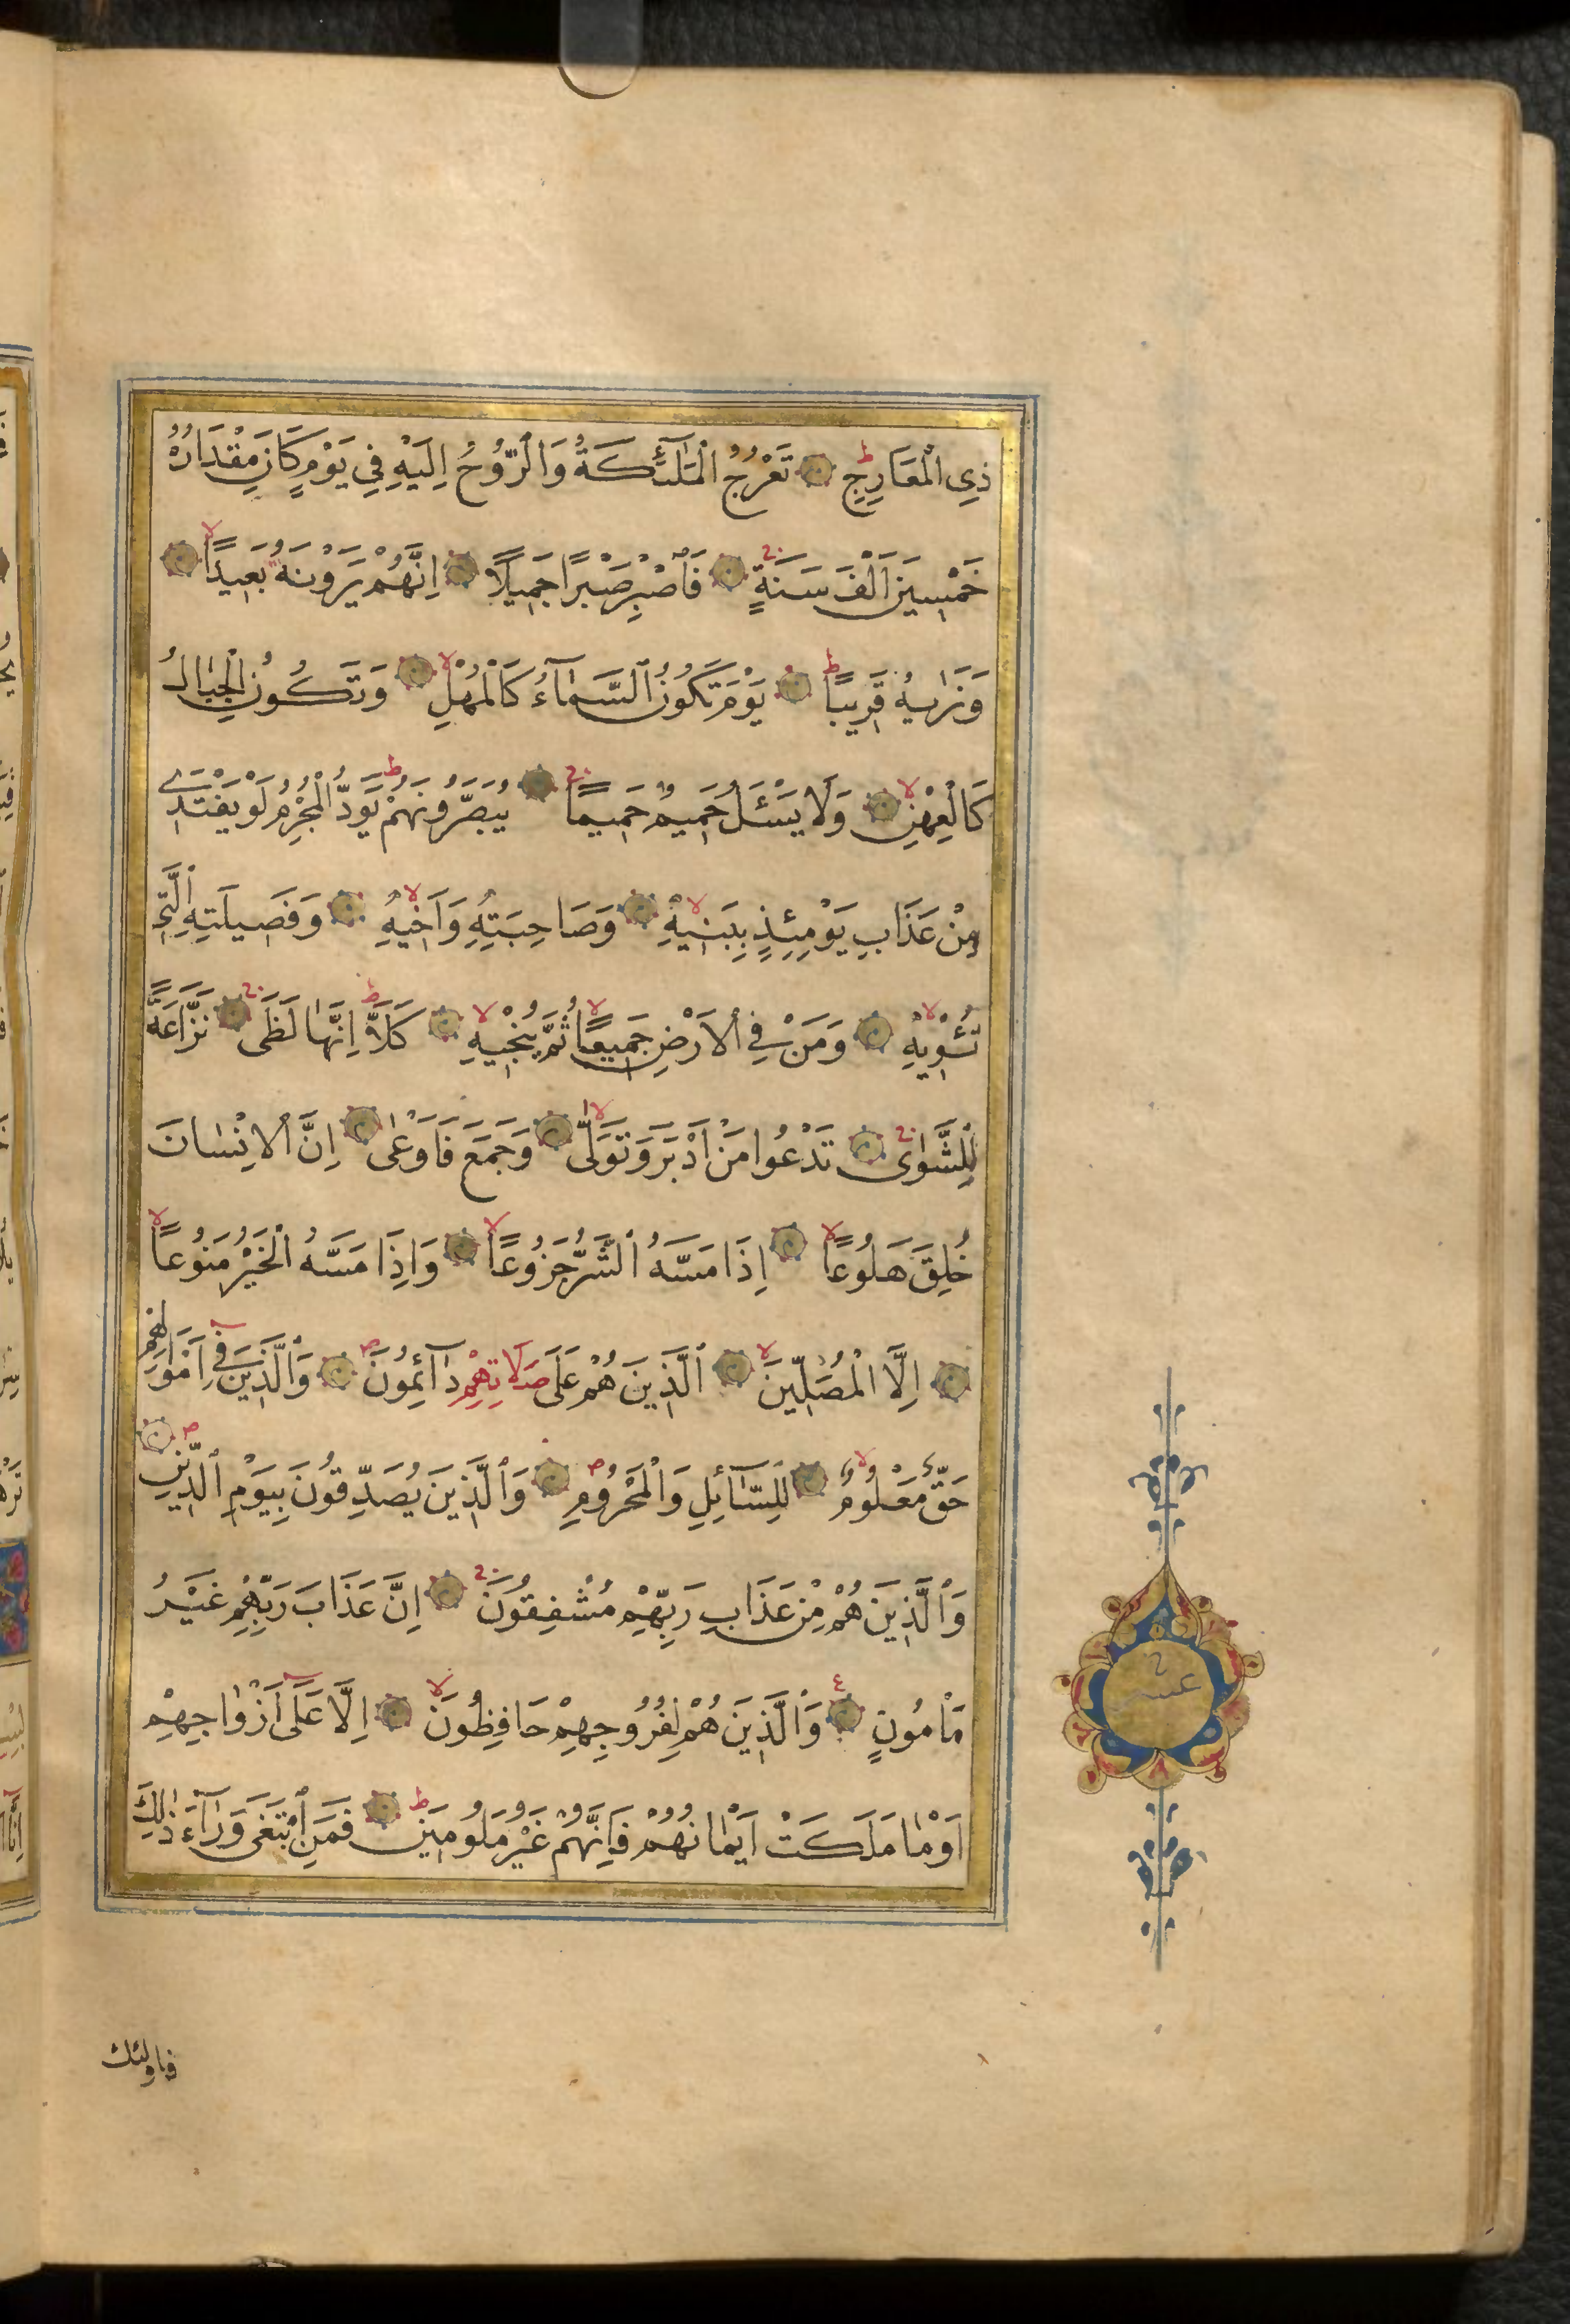 ذِى الْمَعَارِجِ ط تَعْرُجُ الْمَلٰٓئِكَةُ وَالرُّوحُ اِلَيْهِ فِي يَوْمٍ كَانَ مِقْدَارُهُ
خَمْسِينَ اَلْفَ سَنَةٍ ج فَاصْبِرْ صَبْرًا جَمِيلًا اِنَّهُمْ يَرَوْنَهُ بَعِيدًا لا
وَنَرٰيهُ قَرِيبًا ط يَوْمَ تَكُونُ السَّمَآءُ كَالْمُهْلِ لا وَتَكُونُ الْجِبَالُ
كَالْعِهْنِ لا وَلَا يَسْـَٔلُ حَمِيمٌ حَمِيمًا ج يُبَصَّرُونَهُمْ ط يَوَدُّ الْمُجْرِمُ لَوْ يَفْتَدِى
مِنْ عَذَابِ يَوْمِئِذٍ بِبَنِيهِ لا وَصَاحِبَتِهِ وَاَخِيهِ لا وَفَصِيلَتِهِ الَّتِى
تُـْٔوِيهِ لا وَمَنْ فِي الْاَرْضِ جَمِيعًا لا ثُمَّ يُنْجِيهِ لا كَلَّا ط اِنَّهَا لَظَى ج نَزَّاعَةً
لِلشَّوٰى ج تَدْعُوا مَنْ اَدْبَرَ وَتَوَلّٰى لا وَجَمَعَ فَاَوْعٰى اِنَّ الْاِنْسَانَ
خُلِقَ هَلُوعًا لا اِذَا مَسَّهُ الشَّرُّ جَزُوعًا لا وَاِذَا مَسَّهُ الْخَيْرُ مَنُوعًا لا
اِلَّا الْمُصَلِّينَ لا اَلَّذِينَ هُمْ عَلَى صَلَاتِهِمْ دَآئِمُونَ ص وَالَّذِينَ فِي اَمْوَالِهِمْ
حَقٌّ مَعْلُومٌ لا لِلسَّآئِلِ وَالْمَحْرُومِ ص وَالَّذِينَ يُصَدِّقُونَ بِيَوْمِ الدِّينِ ص
وَالَّذِينَ هُمْ مِنْ عَذَابِ رَبِّهِمْ مُشْفِقُونَ ج اِنَّ عَذَابَ رَبِّهِمْ غَيْرُ
مَاْمُونٍ وَالَّذِينَ هُمْ لِفُرُوجِهِمْ حَافِظُونَ لا اِلَّا عَلَى اَزْوَاجِهِمْ
اَوْ مَا مَلَكَتْ اَيْمَانُهُمْ فَاِنَّهُمْ غَيْرُ مَلُومِينَ ط فَمَنِ ابْتَغَى وَرَآءَ ذٰلِكَ
عشر
فاولئك